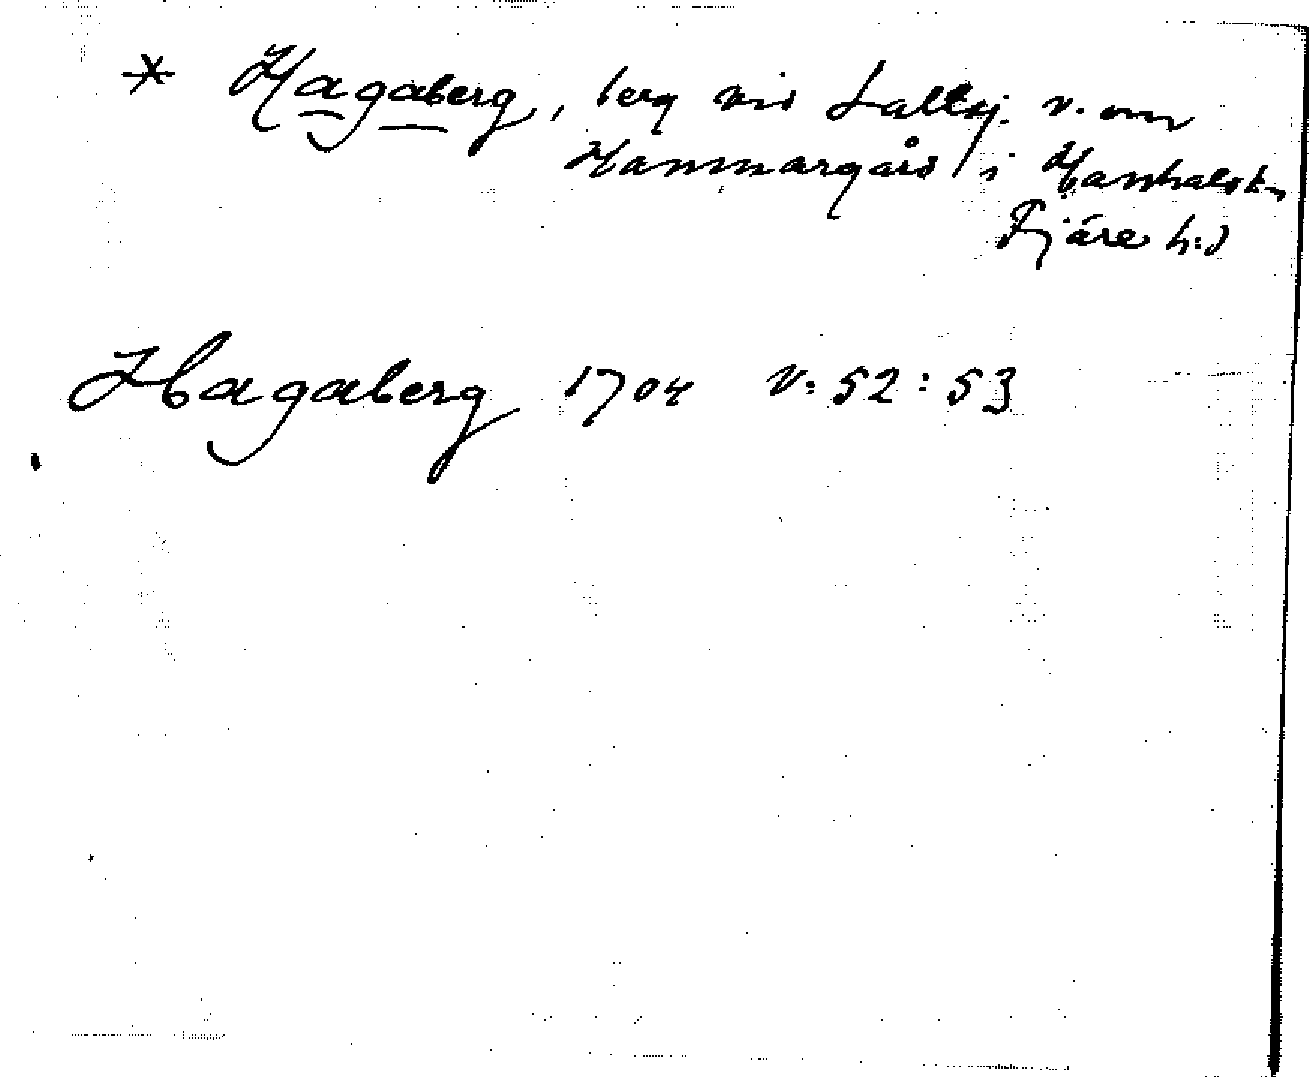 * Hagaberg, berg vid Saltsj. v. om
Hammargård i Hanhalsskn
Fjäre h:d
Hagaberg 1704 V: 52 : 53